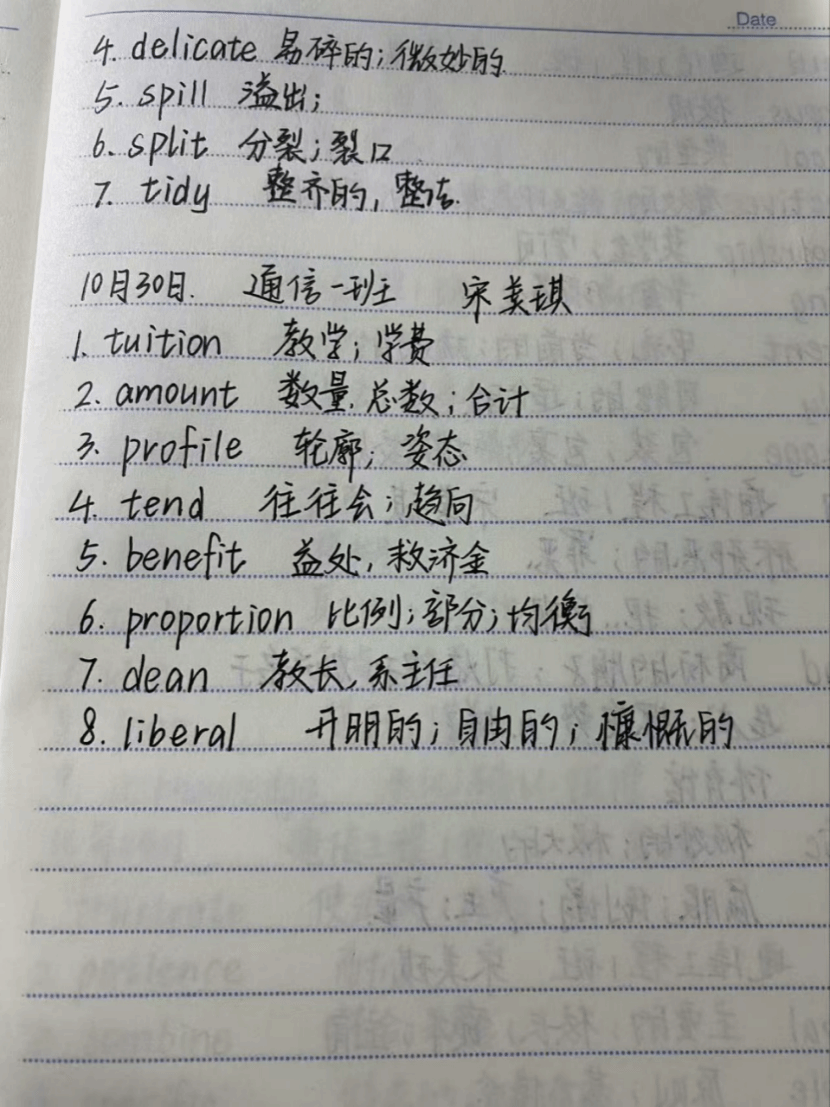 Date
4. delicate 易碎的；微妙的
5. spill 溢出；
6. split 分裂；裂口
7. tidy 整齐的，整洁.
10月30日. 通信一班 宋美琪
1. tuition 教学；学费
2. amount 数量，总数；合计
3. profile 轮廓；姿态
4. tend 往往会；趋向
5. benefit 益处，救济金
6. proportion 比例；部分；均衡
7. dean 教长，系主任
8. liberal 开明的；自由的；慷慨的